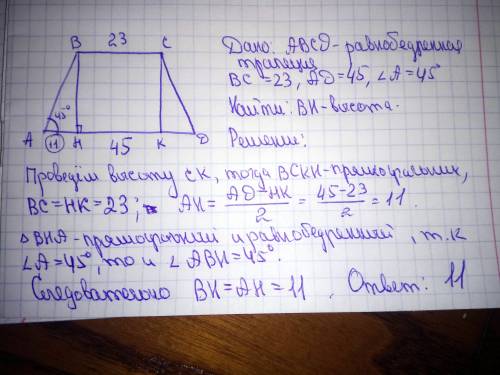 B 23 C
45°
A 11 H 45 K D
Дано: ABCD - равнобедренная
трапеция
BC = 23, AD = 45, ∠A = 45°
Найти: BH - высота.
Решение:
Проведём высоту CK, тогда BCKH - прямоугольник,
BC = HK = 23; AH = (AD - HK)/2 = (45 - 23)/2 = 11.
△BHA - прямоугольный и равнобедренный, т.к
∠A = 45°, то и ∠ABH = 45°.
Следовательно BH = AH = 11. Ответ: 11